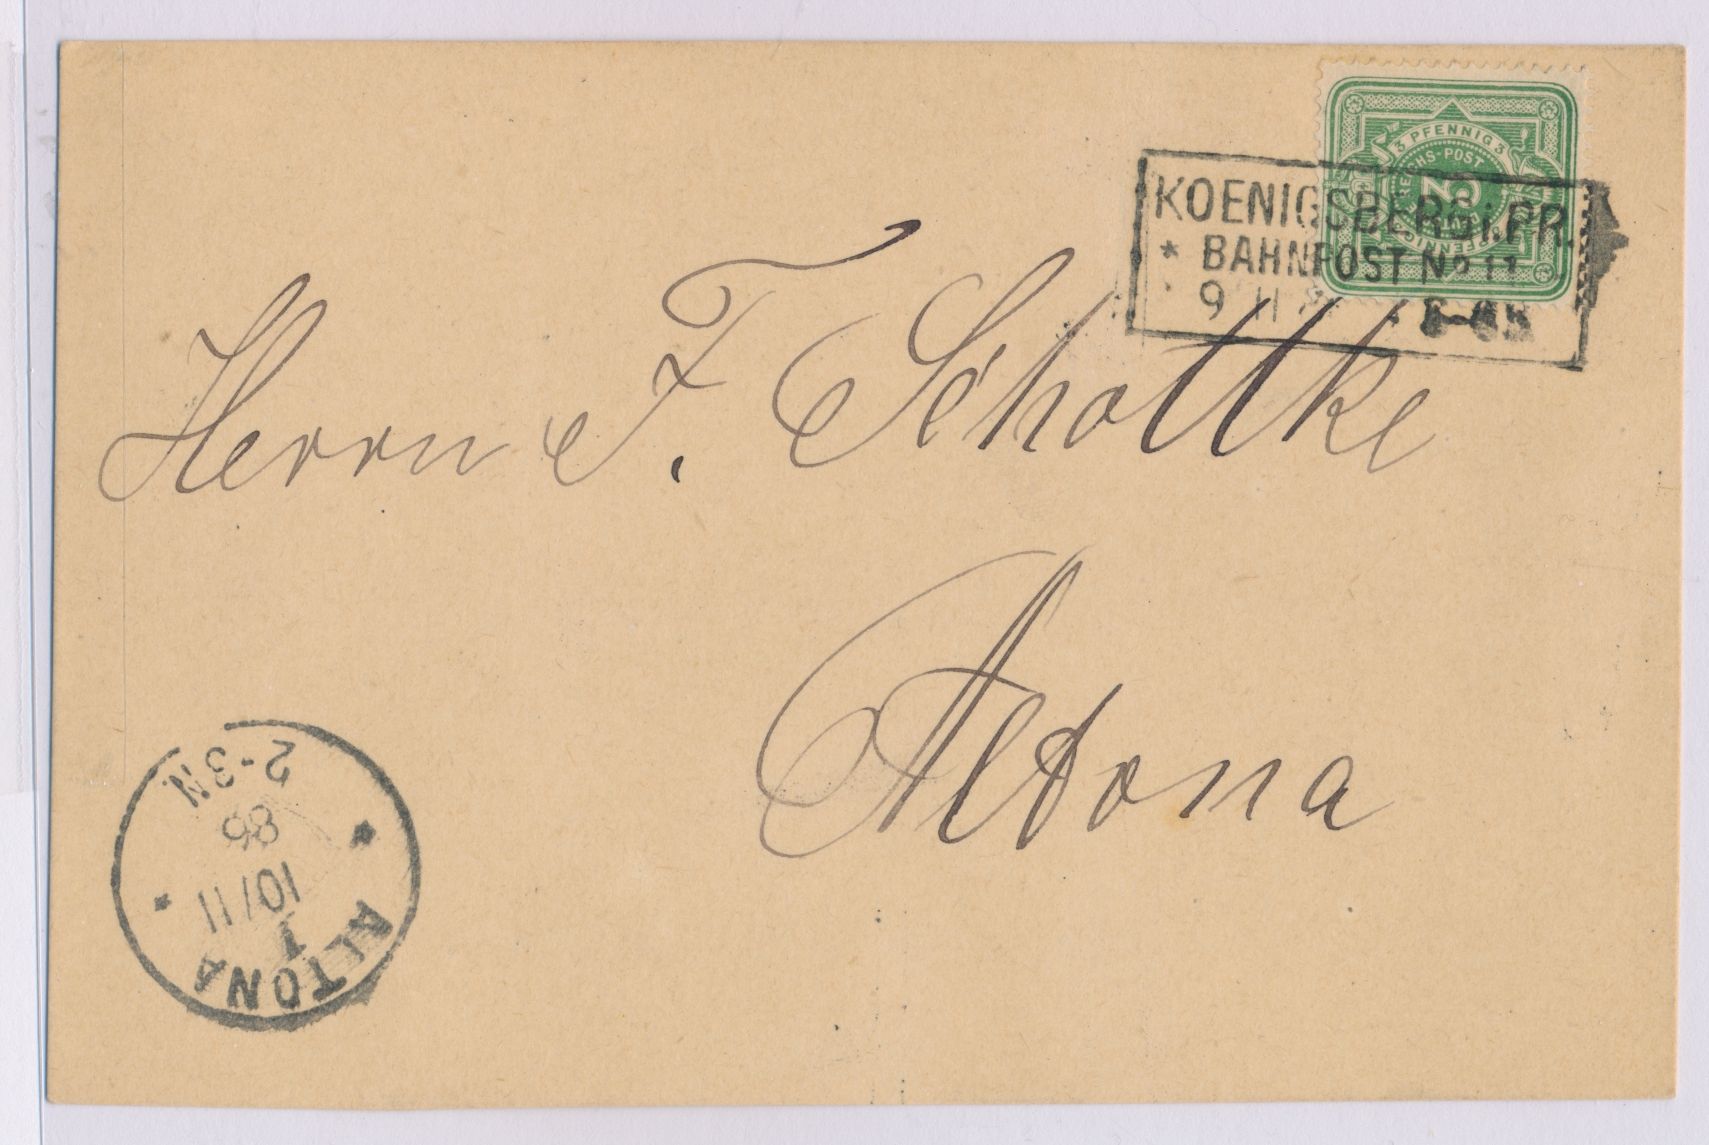 3 PFENNIG 3
REICHS-POST
3
KOENIGSBERG i.PR.
* BAHNPOST No 11
9 11
Herrn F. Schottke
Altona
ALTONA
1
10/11
86
2-3N.